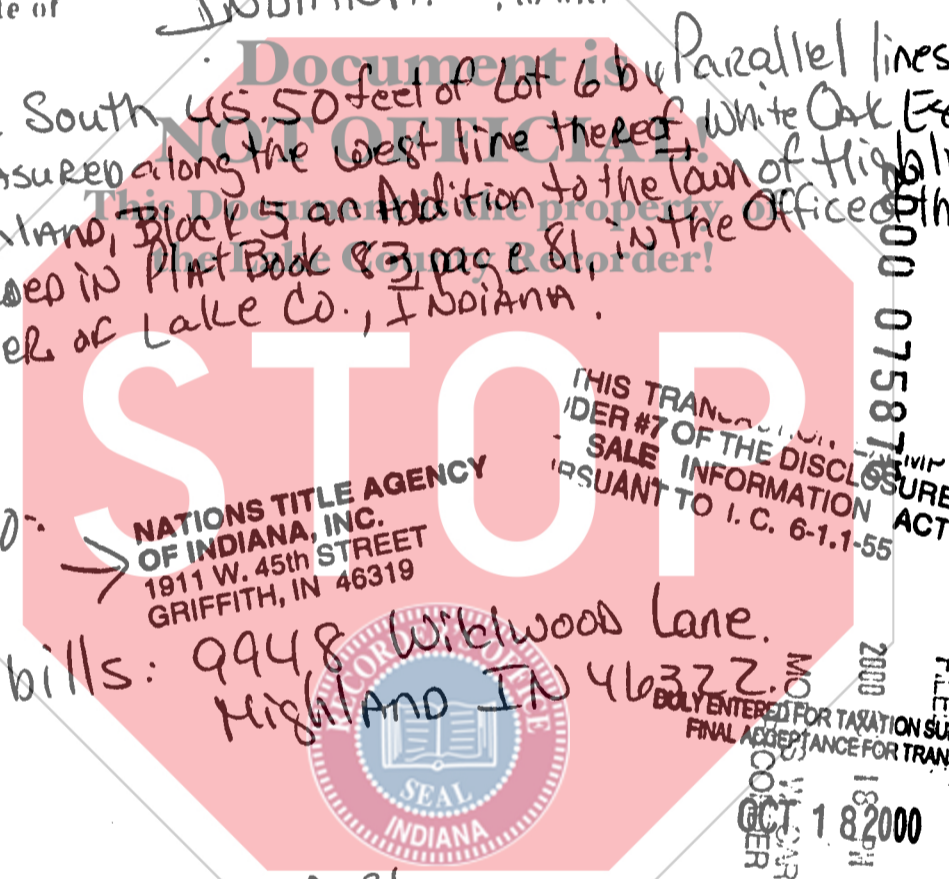 INDIANA
Document is
NOT OFFICIAL!
This Document is the property of
the Lake County Recorder!
STOP
South 45.50 feet of Lot 6 by Parallel lines
asured along the West line thereof White Oak Es
land, Block 5 an Addition to the Town of Highl
ded in Plat Book 83 page 81, in the Office of th
er of Lake Co., INDIANA.
THIS TRAN
DER #7 OF THE DISCLOSURE
SALE INFORMATION ACT
RSUANT TO I. C. 6-1.1-55
NATIONS TITLE AGENCY
OF INDIANA, INC.
1911 W. 45th STREET
GRIFFITH, IN 46319
bills: 9948 Wildwood Lane.
Highland IN 46322.
DULY ENTERED FOR TAXATION SU
FINAL ACCEPTANCE FOR TRAN
OCT 18 2000
SEAL
INDIANA
2000
RECORDER